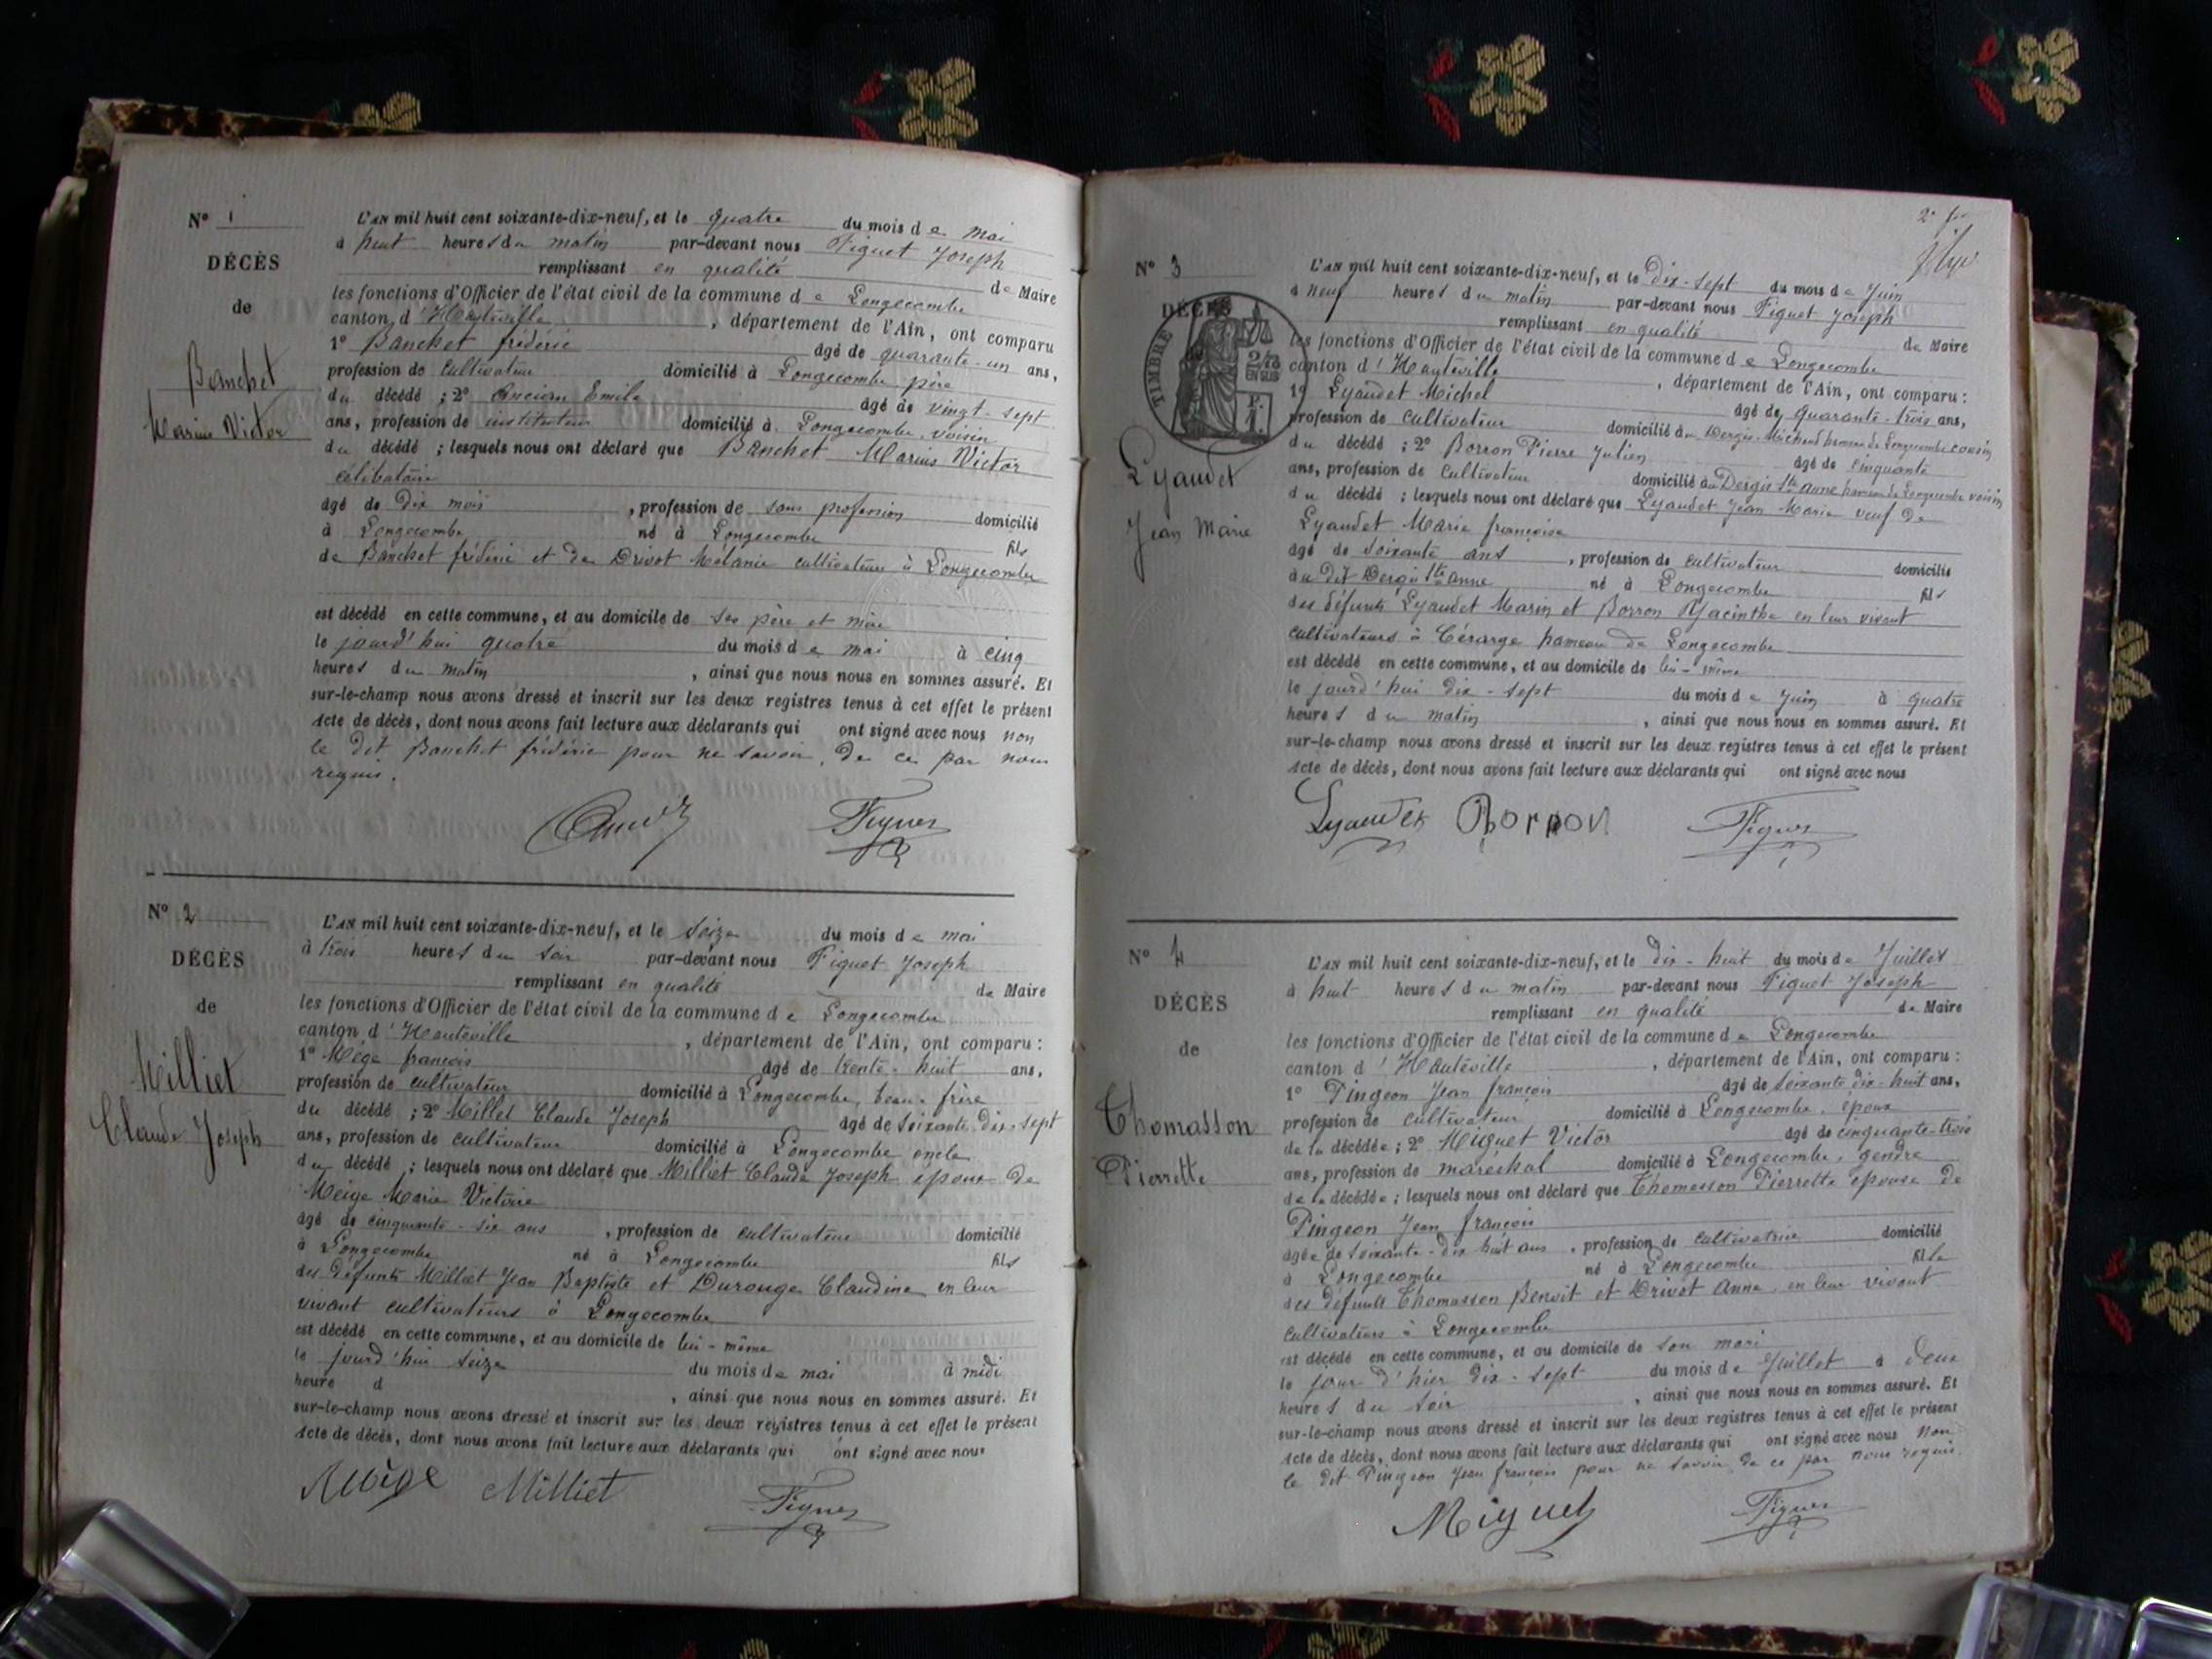 N° 1
DÉCÈS
de
Banchet
Marius Victor
L'AN mil huit cent soixante-dix-neuf, et le quatre du mois de mai
à huit heures du matin par-devant nous Figuet Joseph
remplissant en qualité de Maire
les fonctions d'Officier de l'état civil de la commune de Longecombe
canton d'Hauteville, département de l'Ain, ont comparu
1° Banchet frédéric âgé de quarante-un ans,
profession de cultivateur domicilié à Longecombe père
du décédé ; 2° Ancian Emile âgé de vingt-sept
ans, profession de instituteur domicilié à Longecombe, voisin
du décédé ; lesquels nous ont déclaré que Banchet Marius Victor
célibataire
âgé de dix mois, profession de sans profession domicilié
à Longecombe né à Longecombe fils
de Banchet frédéric et de Drivot Mélanie cultivateurs à Longecombe
est décédé en cette commune, et au domicile de ses père et mère
le jourd'hui quatre du mois de mai à cinq
heures du matin, ainsi que nous nous en sommes assuré. Et
sur-le-champ nous avons dressé et inscrit sur les deux registres tenus à cet effet le présent
acte de décès, dont nous avons fait lecture aux déclarants qui ont signé avec nous non
le dit Banchet frédéric pour ne savoir, de ce par nous
requis.
Figuet
N° 2
DÉCÈS
de
Milliet
Claude Joseph
L'AN mil huit cent soixante-dix-neuf, et le seize du mois de mai
à trois heures du soir par-devant nous Figuet Joseph
remplissant en qualité de Maire
les fonctions d'Officier de l'état civil de la commune de Longecombe
canton d'Hauteville, département de l'Ain, ont comparu :
1° Mège françois âgé de trente-huit ans,
profession de cultivateur domicilié à Longecombe, beau-frère
du décédé ; 2° Milliet Claude Joseph âgé de soixante-dix-sept
ans, profession de cultivateur domicilié à Longecombe oncle
du décédé ; lesquels nous ont déclaré que Milliet Claude Joseph époux de
Meige Marie Victoire
âgé de cinquante-six ans, profession de cultivateur domicilié
à Longecombe né à Longecombe fils
des défunts Milliet Jean Baptiste et Durouge Claudine en leur
vivant cultivateurs à Longecombe
est décédé en cette commune, et au domicile de lui-même
le jourd'hui seize du mois de mai à midi
heure d , ainsi que nous nous en sommes assuré. Et
sur-le-champ nous avons dressé et inscrit sur les deux registres tenus à cet effet le présent
acte de décès, dont nous avons fait lecture aux déclarants qui ont signé avec nous
Mège Milliet Figuet
2e
N° 3
DÉCÈS
TIMBRE
2/10
EN SUS
Lyaudet
Jean Marie
L'AN mil huit cent soixante-dix-neuf, et le dix-sept du mois de Juin
à neuf heures du matin par-devant nous Figuet Joseph
remplissant en qualité de Maire
les fonctions d'Officier de l'état civil de la commune de Longecombe
canton d'Hauteville, département de l'Ain, ont comparu :
1° Lyaudet Michel âgé de quarante-trois ans,
profession de cultivateur domicilié au Dergis-Michaud hameau de Longecombe cousin
du décédé ; 2° Borron Pierre Julien âgé de cinquante
ans, profession de cultivateur domicilié au Dergis Ste Anne hameau de Longecombe voisin
du décédé ; lesquels nous ont déclaré que Lyaudet Jean Marie veuf de
Lyaudet Marie françoise
âgé de soixante ans, profession de cultivateur domicilié
au dit Dergis Ste anne né à Longecombe fils
des défunts Lyaudet Marin et Borron Hyacinthe en leur vivant
cultivateurs à Cérarge hameau de Longecombe
est décédé en cette commune, et au domicile de lui-même
le jourd'hui dix-sept du mois de Juin à quatre
heures du matin, ainsi que nous nous en sommes assuré. Et
sur-le-champ nous avons dressé et inscrit sur les deux registres tenus à cet effet le présent
acte de décès, dont nous avons fait lecture aux déclarants qui ont signé avec nous
Lyaudet Borron Figuet
N° 4
DÉCÈS
de
Thomasson
Pierrette
L'AN mil huit cent soixante-dix-neuf, et le dix-huit du mois de Juillet
à huit heures du matin par-devant nous Figuet Joseph
remplissant en qualité de Maire
les fonctions d'Officier de l'état civil de la commune de Longecombe
canton d'Hauteville, département de l'Ain, ont comparu :
1° Pingeon Jean françois âgé de soixante-dix-huit ans,
profession de cultivateur domicilié à Longecombe, époux
de la décédée ; 2° Miguet Victor âgé de cinquante-trois
ans, profession de maréchal domicilié à Longecombe, gendre
de la décédée ; lesquels nous ont déclaré que Thomasson Pierrette épouse de
Pingeon Jean françois
âgée de soixante-dix huit ans, profession de cultivatrice domicilié
à Longecombe né à Longecombe fille
des défunts Thomasson Benoit et Drivot Anne, en leur vivant
cultivateurs à Longecombe
est décédé en cette commune, et au domicile de son mari
le jour d'hier dix-sept du mois de Juillet à deux
heures du soir, ainsi que nous nous en sommes assuré. Et
sur-le-champ nous avons dressé et inscrit sur les deux registres tenus à cet effet le présent
acte de décès, dont nous avons fait lecture aux déclarants qui ont signé avec nous non
le dit Pingeon Jean françois pour ne savoir de ce par nous requis.
Miguet Figuet